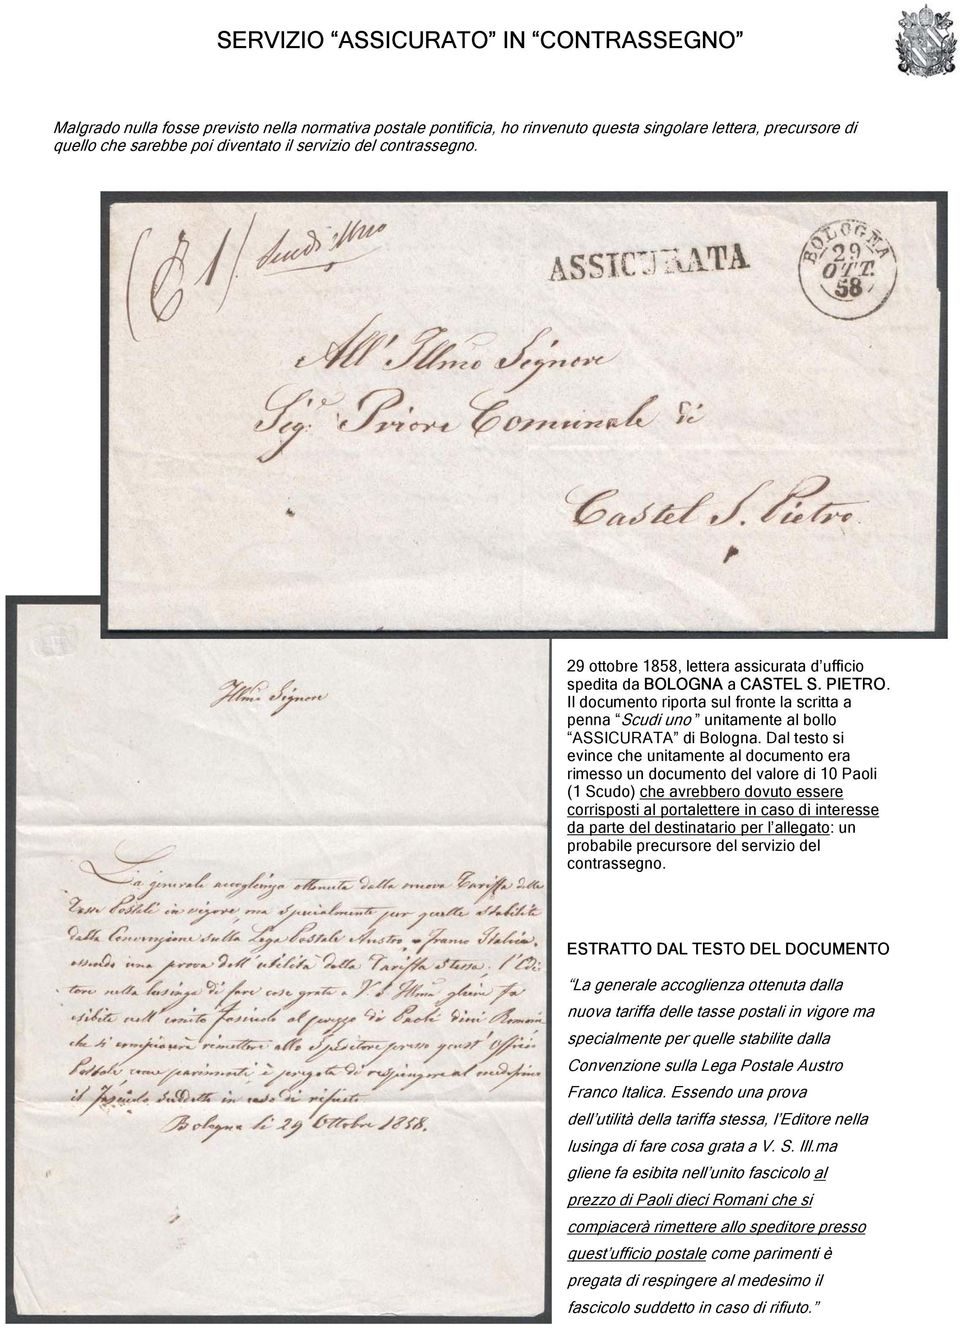 SERVIZIO “ASSICURATO” IN “CONTRASSEGNO”
Malgrado nulla fosse previsto nella normativa postale pontificia, ho rinvenuto questa singolare lettera, precursore di
quello che sarebbe poi diventato il servizio del contrassegno.
1 Scudi Uno
ASSICURATA
BOLOGNA
29
OTT.
58
All' Illmo Signore
Sig.e Priore Comunale di
Castel S. Pietro
29 ottobre 1858, lettera assicurata d’ufficio
spedita da BOLOGNA a CASTEL S. PIETRO.
Il documento riporta sul fronte la scritta a
penna “Scudi uno” unitamente al bollo
“ASSICURATA” di Bologna. Dal testo si
evince che unitamente al documento era
rimesso un documento del valore di 10 Paoli
(1 Scudo) che avrebbero dovuto essere
corrisposti al portalettere in caso di interesse
da parte del destinatario per l’allegato: un
probabile precursore del servizio del
contrassegno.
Illmo Signore
La generale accoglienza ottenuta dalla nuova Tariffa delle
Tasse Postali in vigore, ma specialmente per quelle stabilite
dalla Convenzione sulla Lega Postale Austro Franco Italica.
essendo una prova dell'utilità della Tariffa stessa, l'Edi
tore nella lusinga di fare cosa grata a V. S. Illma gliene fa
esibita nell'unito fascicolo al prezzo di Paoli dieci Romani
che si compiacerà rimettere allo Speditore presso quest'Officio
Postale, come parimenti è pregata di respingere al medesimo
il fascicolo suddetto in caso di rifiuto.
Bologna li 29 Ottobre 1858.
ESTRATTO DAL TESTO DEL DOCUMENTO
“La generale accoglienza ottenuta dalla
nuova tariffa delle tasse postali in vigore ma
specialmente per quelle stabilite dalla
Convenzione sulla Lega Postale Austro
Franco Italica. Essendo una prova
dell’utilità della tariffa stessa, l’Editore nella
lusinga di fare cosa grata a V. S. Ill.ma
gliene fa esibita nell’unito fascicolo al
prezzo di Paoli dieci Romani che si
compiacerà rimettere allo speditore presso
quest’ufficio postale come parimenti è
pregata di respingere al medesimo il
fascicolo suddetto in caso di rifiuto.”